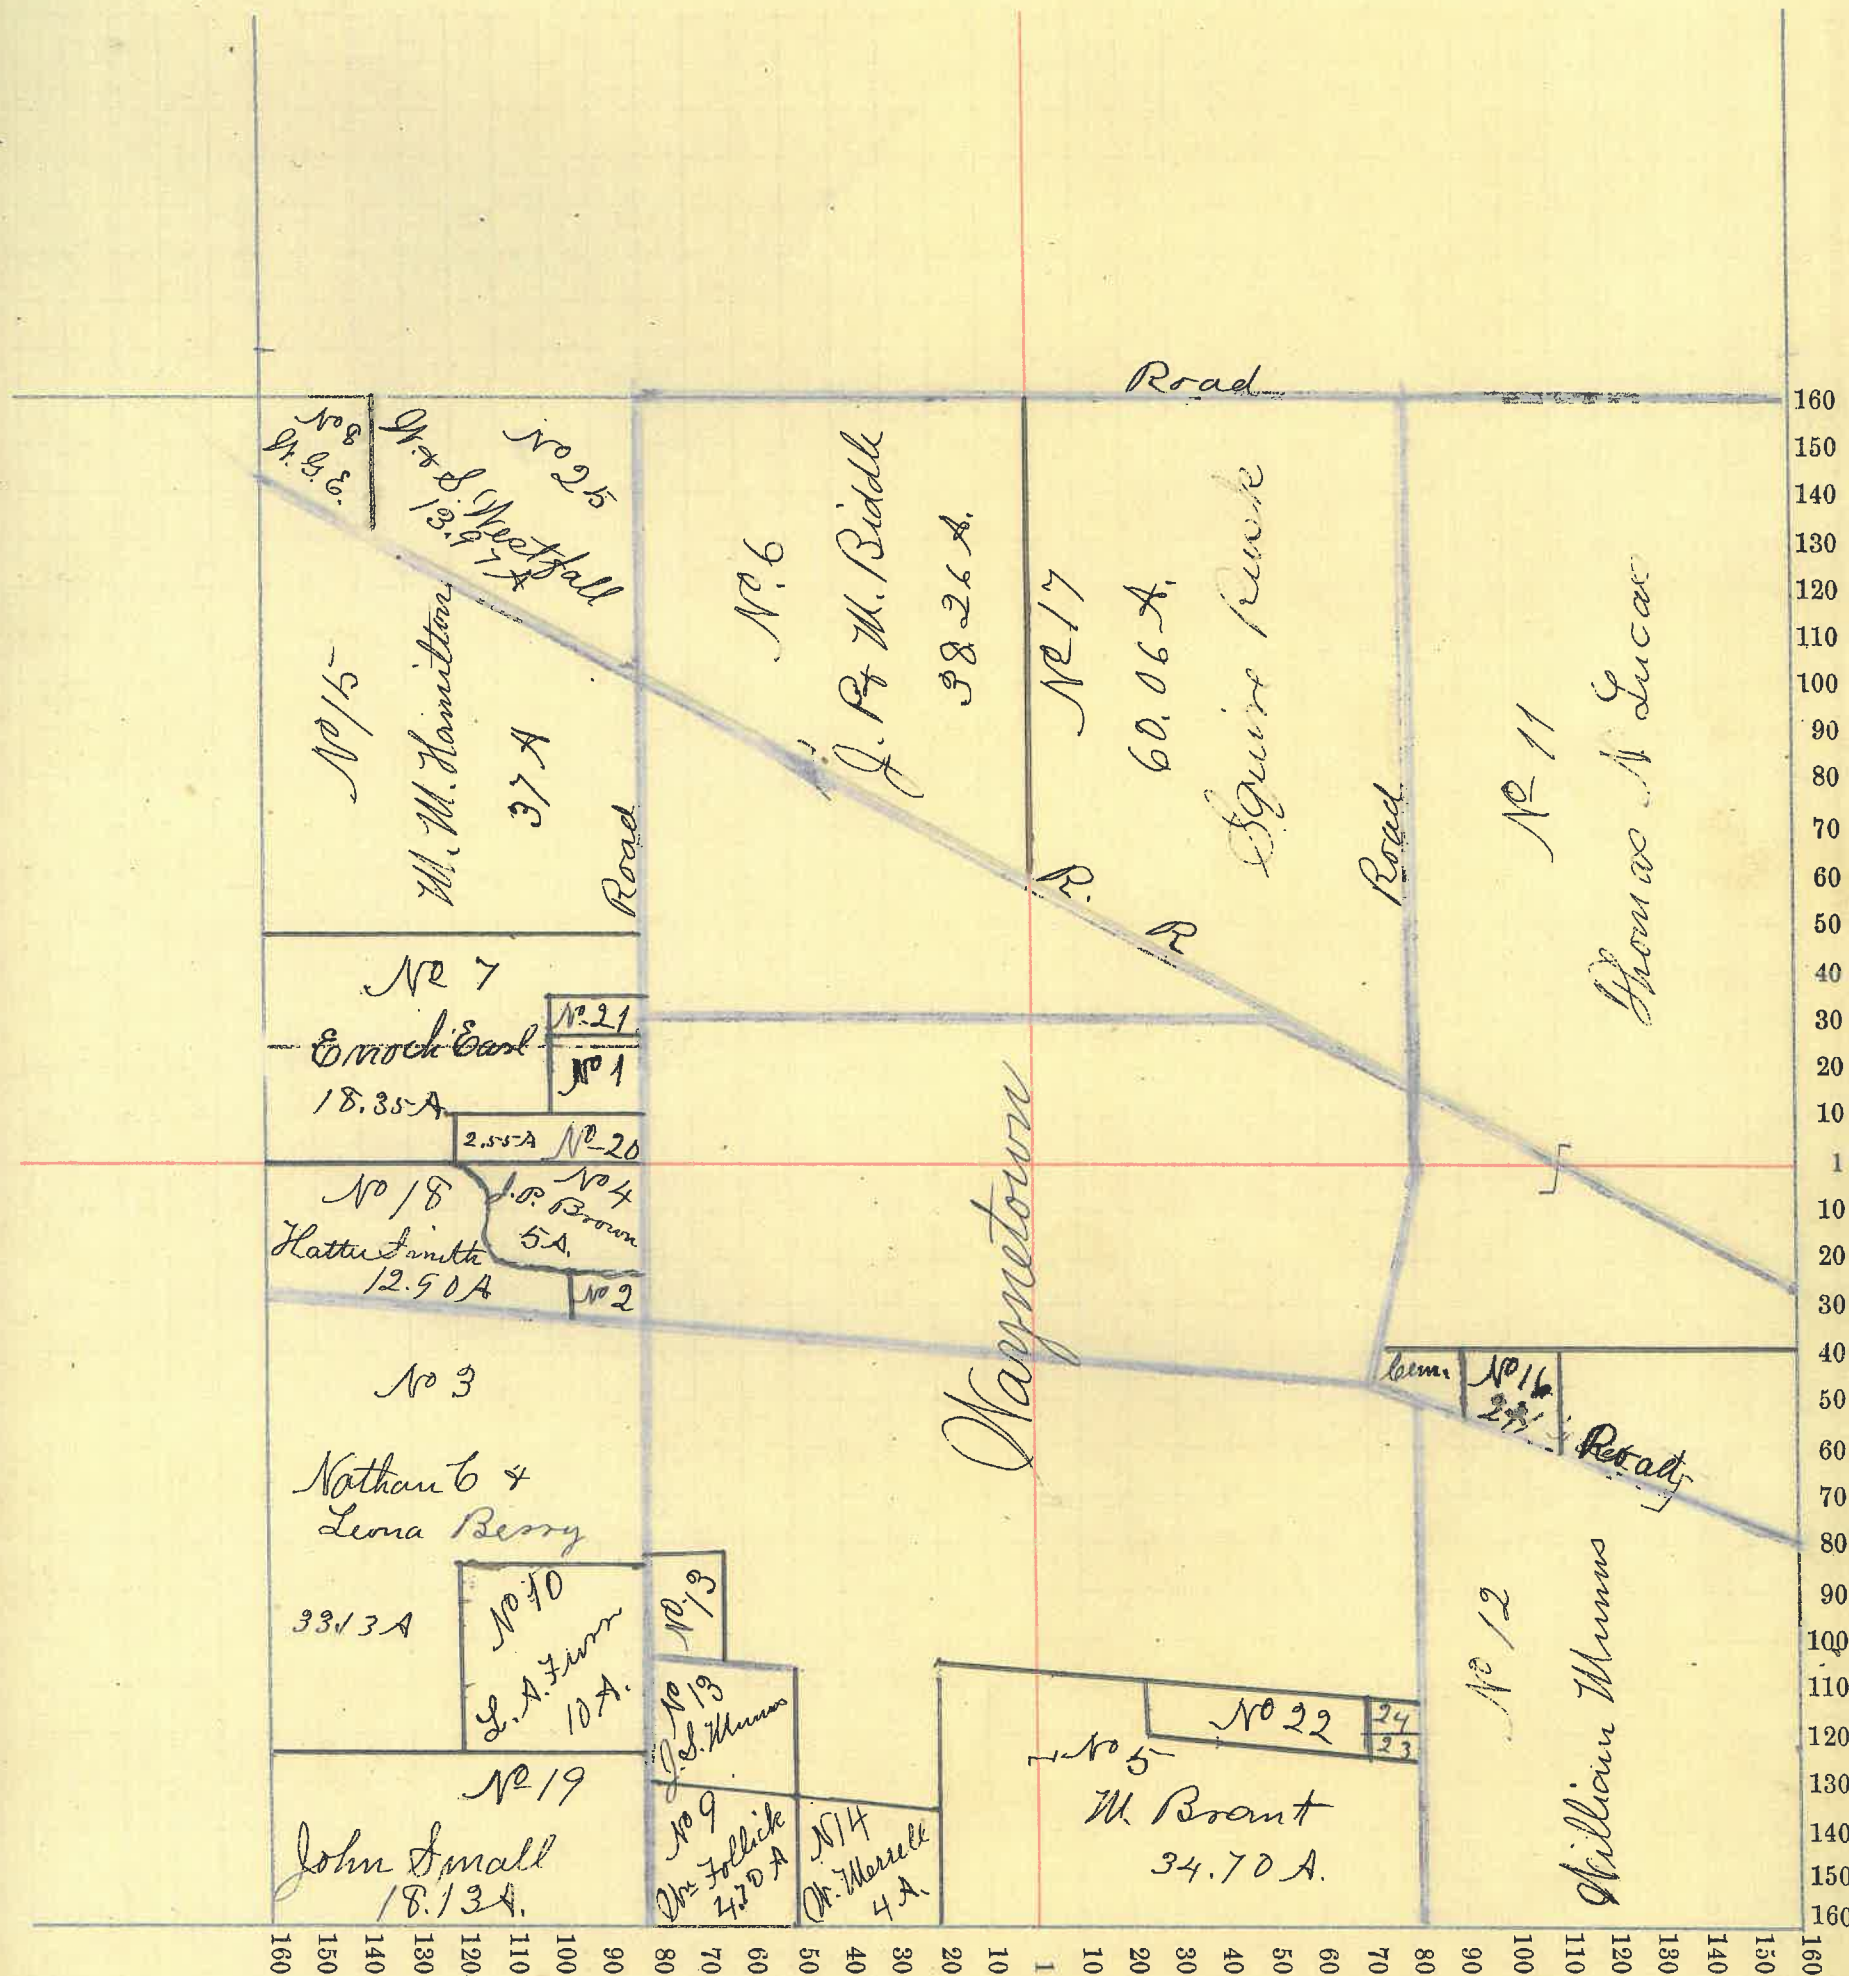 Road
No 8
W. &
3.
No 25
W. & J. Westfall
13.67 A
No 15
M. M. Hamilton
37 A
Road
No. 6
J. P & M. Biddle
38.26 A.
No 17
60.06 A.
Squire Ruark
R. R
Road
No 11
Thomas N Lucas
No 7
Enoch Earl
18.35 A
No. 21
No 1
2.55 A No 20
No 18
Hattie Smith
12.90 A
No 4
J. P. Brown
5 A.
No 2
Waynetown
Cem.
No 16
Road
No 3
Nathan C &
Leona Berry
33.13 A
No 10
L. A.
10 A.
No 13
No 13
J. S. Munns
No 9
Wm Follick
4.70 A
N 14
W. Merrell
4 A.
No 22
24
23
No 5
M. Brant
34.70 A.
No 12
William Munns
No 19
John Small
18.13 A.
160
150
140
130
120
110
100
90
80
70
60
50
40
30
20
10
1
10
20
30
40
50
60
70
80
90
100
110
120
130
140
150
160
160 150 140 130 120 110 100 90 80 70 60 50 40 30 20 10 1 10 20 30 40 50 60 70 80 90 100 110 120 130 140 150 160